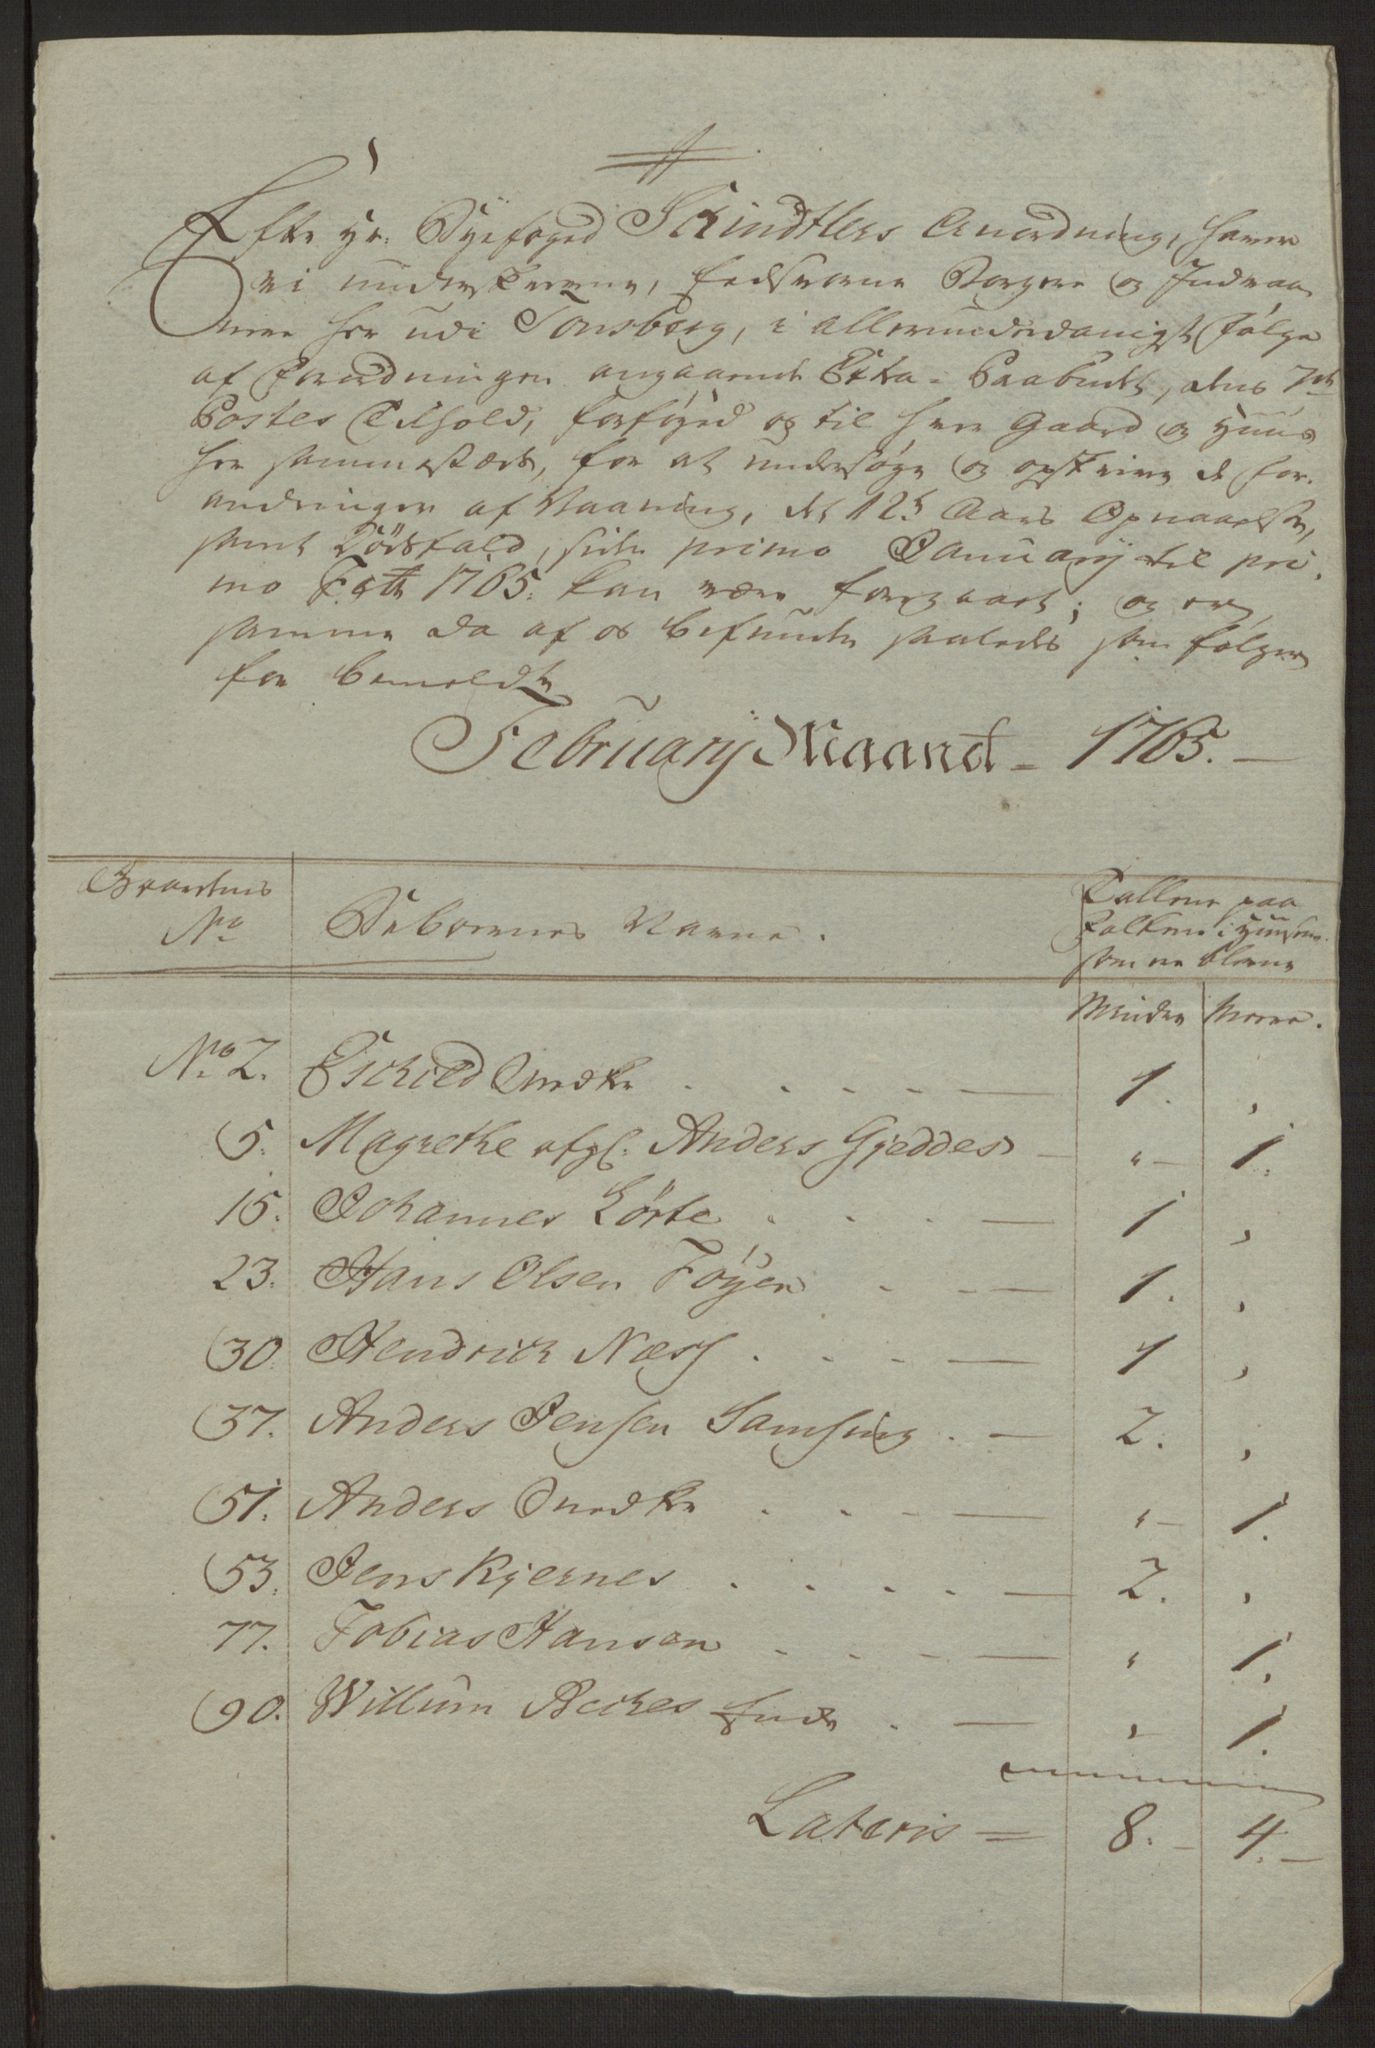 Efter Hr: Byefoged Schindtlers Anordning, haver
vi underskrevne, Eedsvorne Borgere og Indvaa
nere her udi Tonsberg, i allerunderdanigst følge
af Forordningen angaaende Extra-Paabudet, dens 7de
Postes Tilhold, forføyed os til hver Gaard og Huus
her sammestæds, for at undersøge og opskrive de for-
andringer af Vaaning, det 12te Aars Opnaaelse,
samt Dödsfald, siden primo January til pri,
mo Febr 1765: kan være foregaaet; og er
samme da af os befunden saaledes som følger
for bemeldte
February Maaned - 1765. -
Gaardenes
No
Beboernes Navne.
Tallene paa
Folkene i Huusene
som ere blevne
Minder Meere.
No 2. Eschild Smedke 1. ,
5. Magrethe afgl. Anders Gjeddes - " - 1.
15. Johannes Lörte 1 ,
23. Hans Olsen Föyen 1. ,
30. Hendrich Næss 1 ,
37. Anders Jensen Samsing 2. ,
51. Anders Smedke " - 1.
53. Jens Kjernes 2. ,
77. Tobias Hansen " 1.
90. Willum Beches Enke " 1.
Lateris = 8. - 4. -